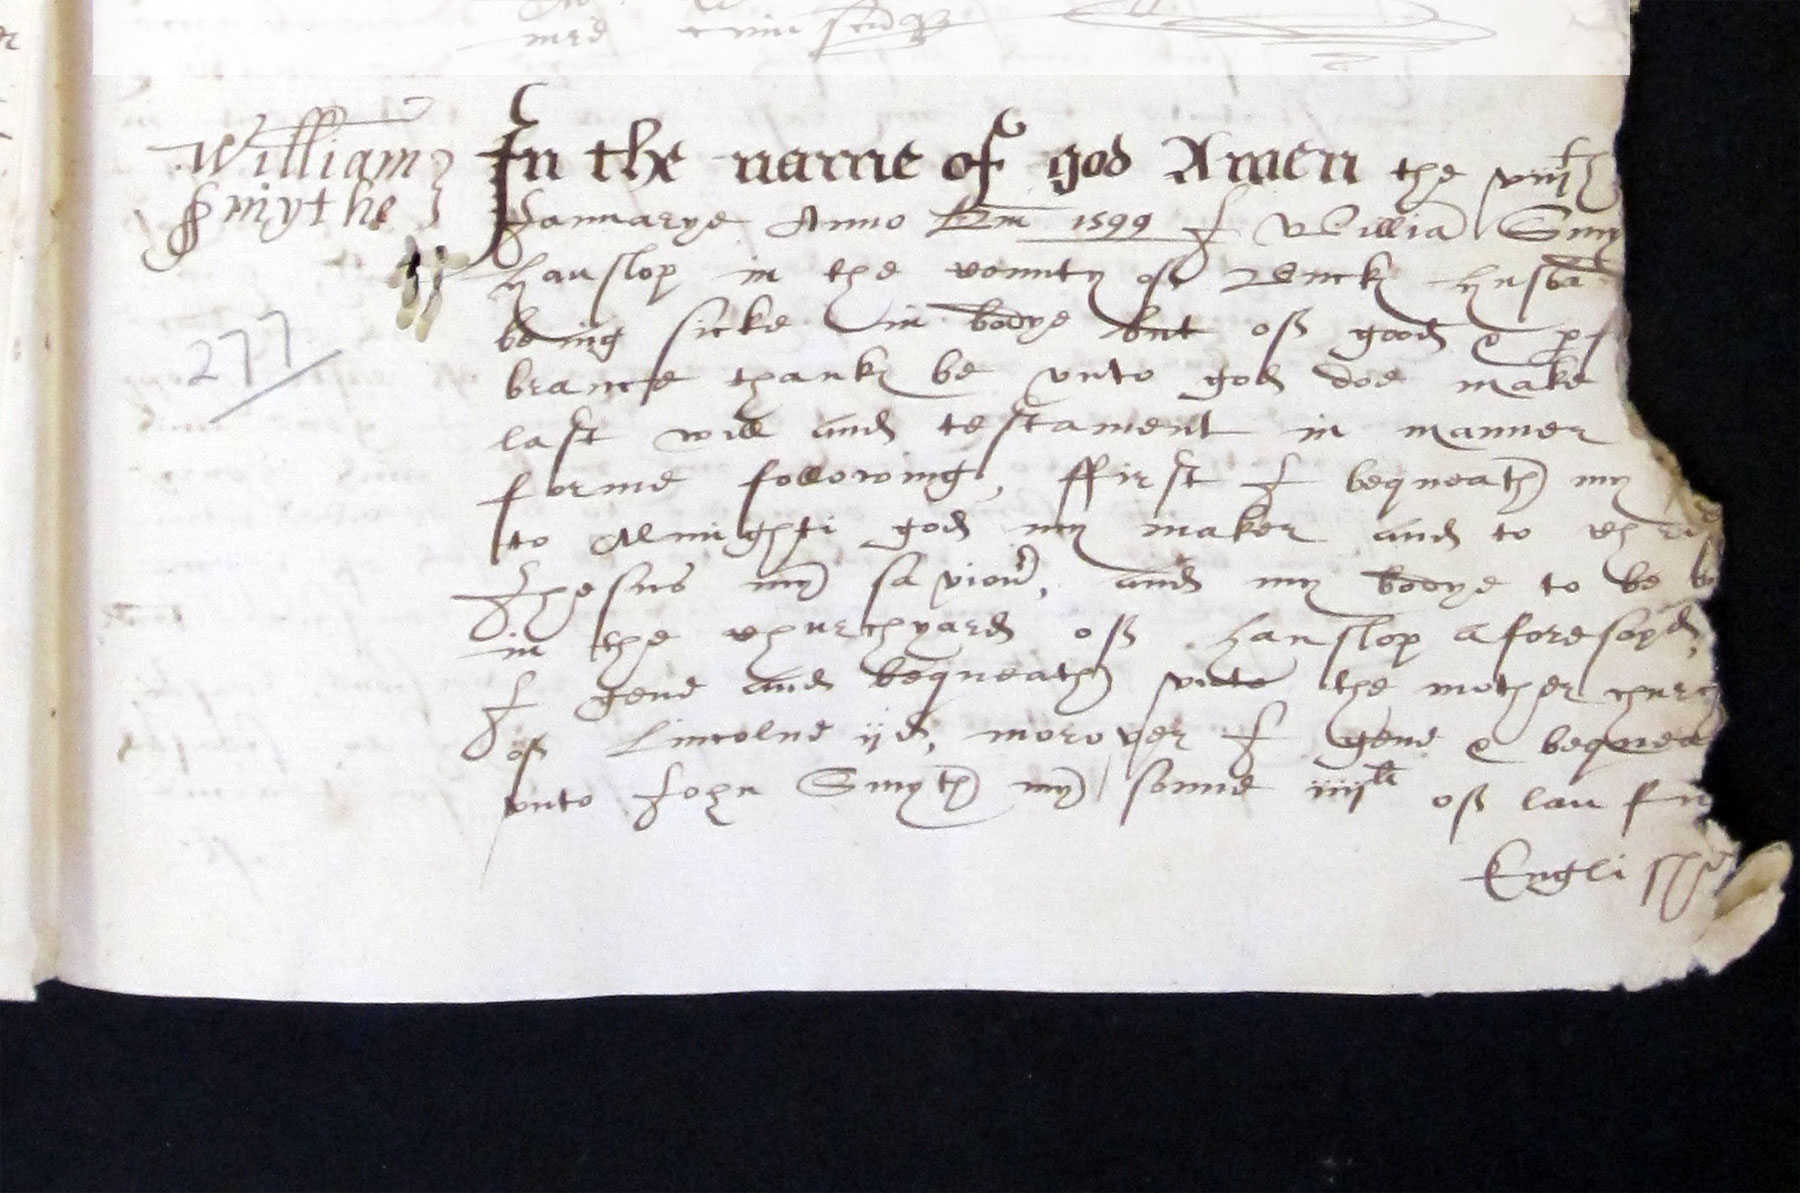 William
Smythe
277
In the name of god Amen the viijth
Januarye Anno Dm 1599 I William Smy
Hanslop in the County of Buck husba
being sicke in bodye but of good & pf
brance thanks be unto god doe make
last will and testament in manner
forme following, ffirst I bequeath my
to Almighti god my maker and to Chris
Jhesus my saviour, and my bodye to be bu
in the Churchyard of Hanslop aforesayd,
I geve and bequeath vnto the mother church
of Lincolne ijd, morover I geve & bequea
vnto John Smyth my sonne iiijli of lau full
Englishe